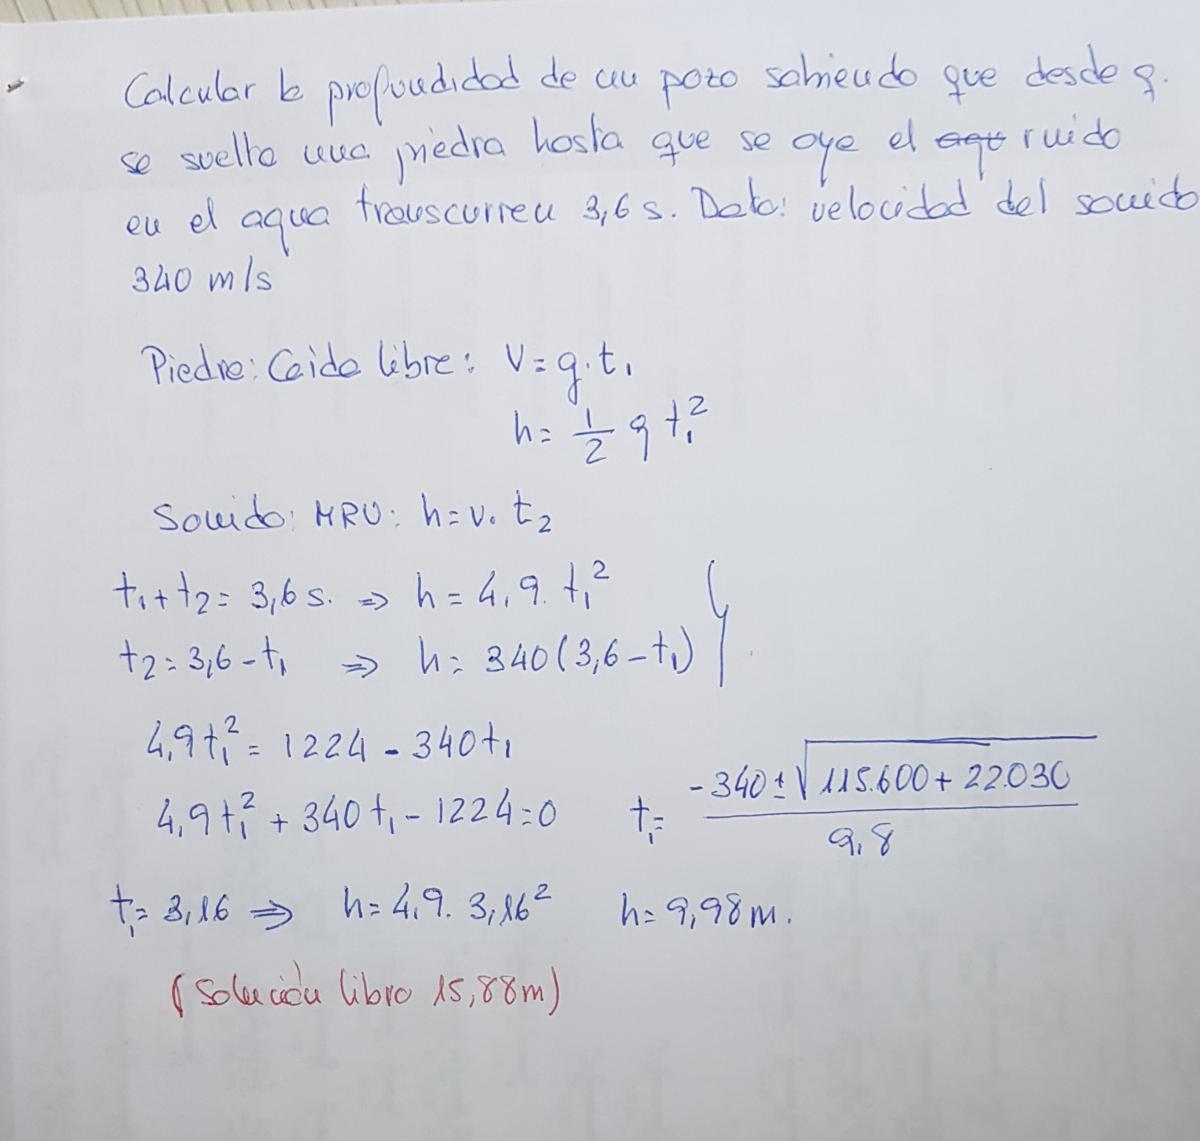 Calcular la profundidad de un pozo sabiendo que desde q.
se suelta una piedra hasta que se oye el ruido
en el agua transcurren 3,6 s. Dato: velocidad del sonido
340 m/s
Piedra: Caida libre: v = g·t₁
h = 1/2 g t₁²
Sonido: MRU: h = v. t₂
t₁ + t₂ = 3,6 s. ⇒ h = 4,9. t₁²
t₂ = 3,6 - t₁ ⇒ h = 340 (3,6 - t₁) }
4,9 t₁² = 1224 - 340 t₁
4,9 t₁² + 340 t₁ - 1224 = 0 t₁ = (-340 ± √(115.600 + 22.030)) / 9,8
t₁ = 3,16 ⇒ h = 4,9. 3,16² h = 9,98 m.
(Solución libro 15,88 m)